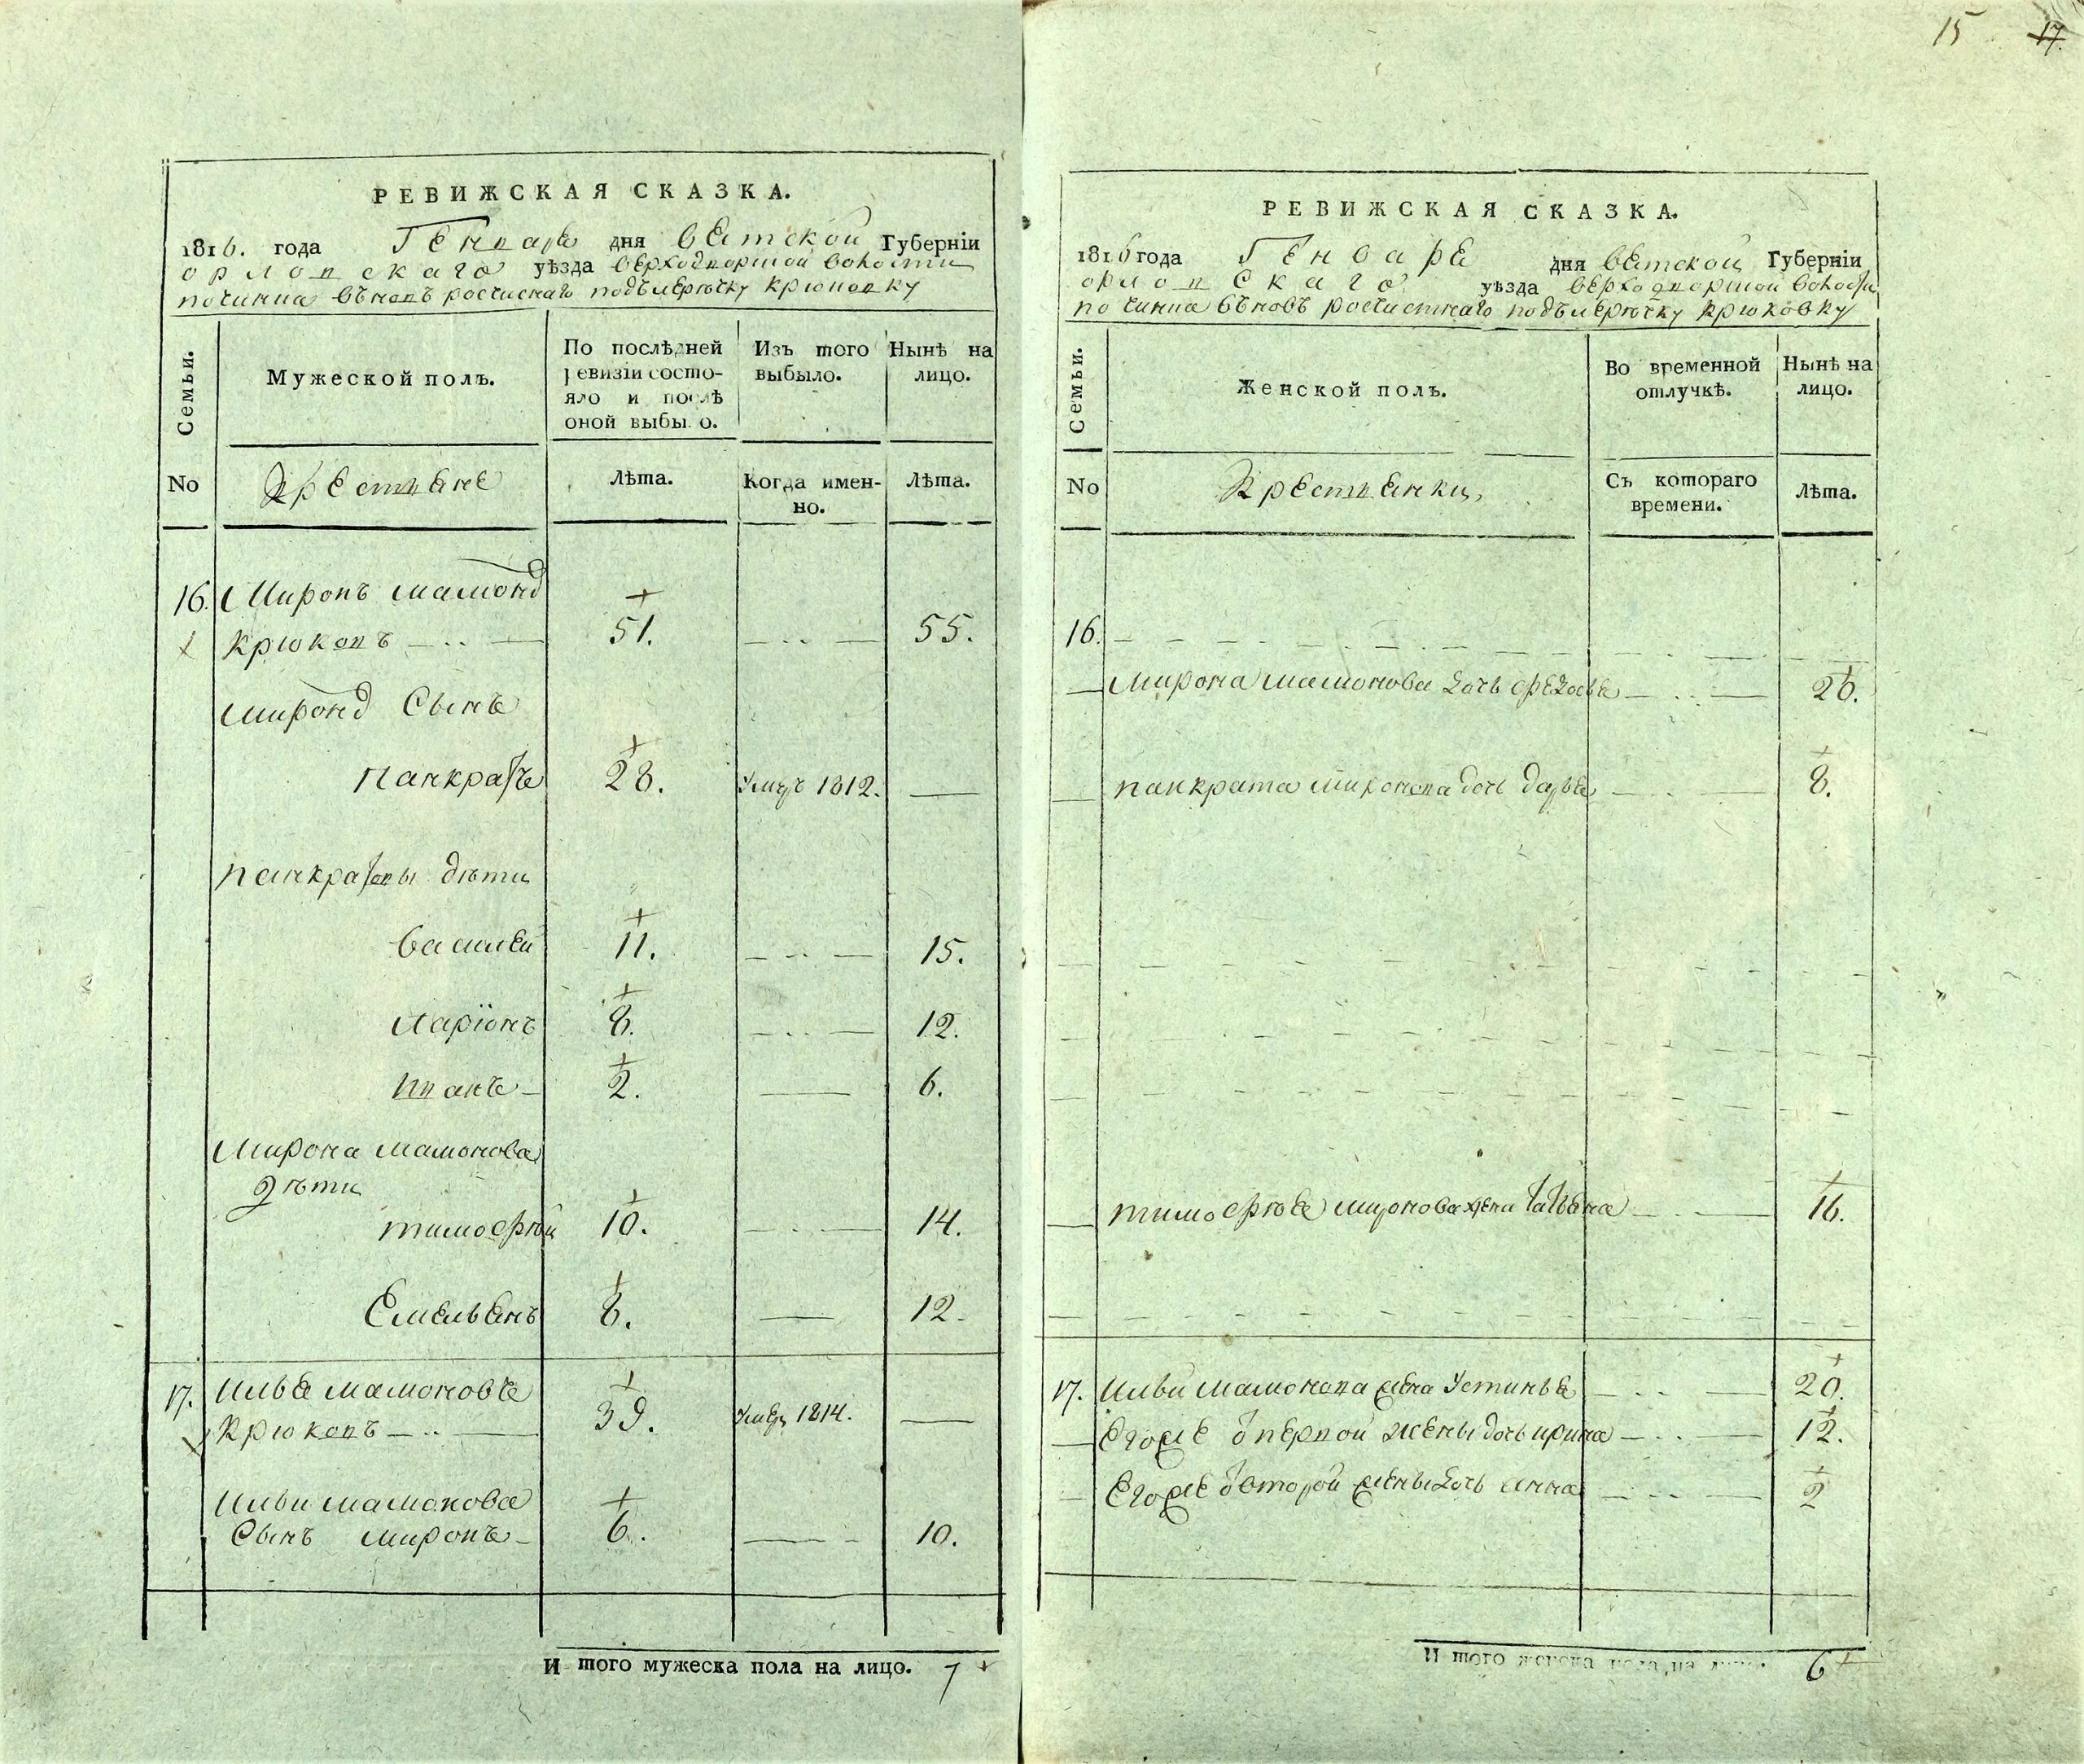 15 17.
РЕВИЖСКАЯ СКАЗКА.
1816. года Генваря дня вятской Губерніи
орловскаго уѣзда верходворской волости
починка въновь росчиснаго подъ мерючку крюковку
Семьи.
Мужеской полъ.
По послѣдней ревизіи состояло и послѣ оной выбыло.
Изъ того выбыло.
Нынѣ на лицо.
No
Крестьяне
Лѣта.
Когда именно.
Лѣта.
16. Миронъ мамонов
крюковъ 51. 55.
миронов Сынъ
панкратъ 28. Умеръ 1812.
панкратовы дѣти
василей 11. 15.
Ларіонъ 8. 12.
иванъ 2. 6.
Мирона мамонова
дѣти
тимофѣй 10. 14.
Емельянъ 8. 12.
17. Илья мамоновъ
Крюковъ 39. Умеръ 1814.
Ильи мамонова
Сынъ миронъ 6. 10.
И того мужеска пола на лицо. 7
РЕВИЖСКАЯ СКАЗКА.
1816 года Генваря дня вятской Губерніи
орловскаго уѣзда верходворской волости
починка въновь росчистнаго подъ мерючку крюковку
Семьи.
Женской полъ.
Во временной отлучкѣ.
Нынѣ на лицо.
No
Крестьянки,
Съ котораго времени.
Лѣта.
16.
Мирона мамонова дочь федосья 26.
панкрата миронова дочь дарья 8.
тимофѣя миронова жена татьяна 16.
17. Ильи мамонова жена Устинья 20.
Егоже от первой жены дочь ирина 12.
Егоже от второй жены дочь анна 2
И того женска пола на лицо. 6